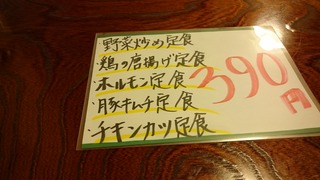 ・野菜炒め定食
・鶏の唐揚げ定食
・ホルモン定食
・豚キムチ定食
・チキンカツ定食
390円